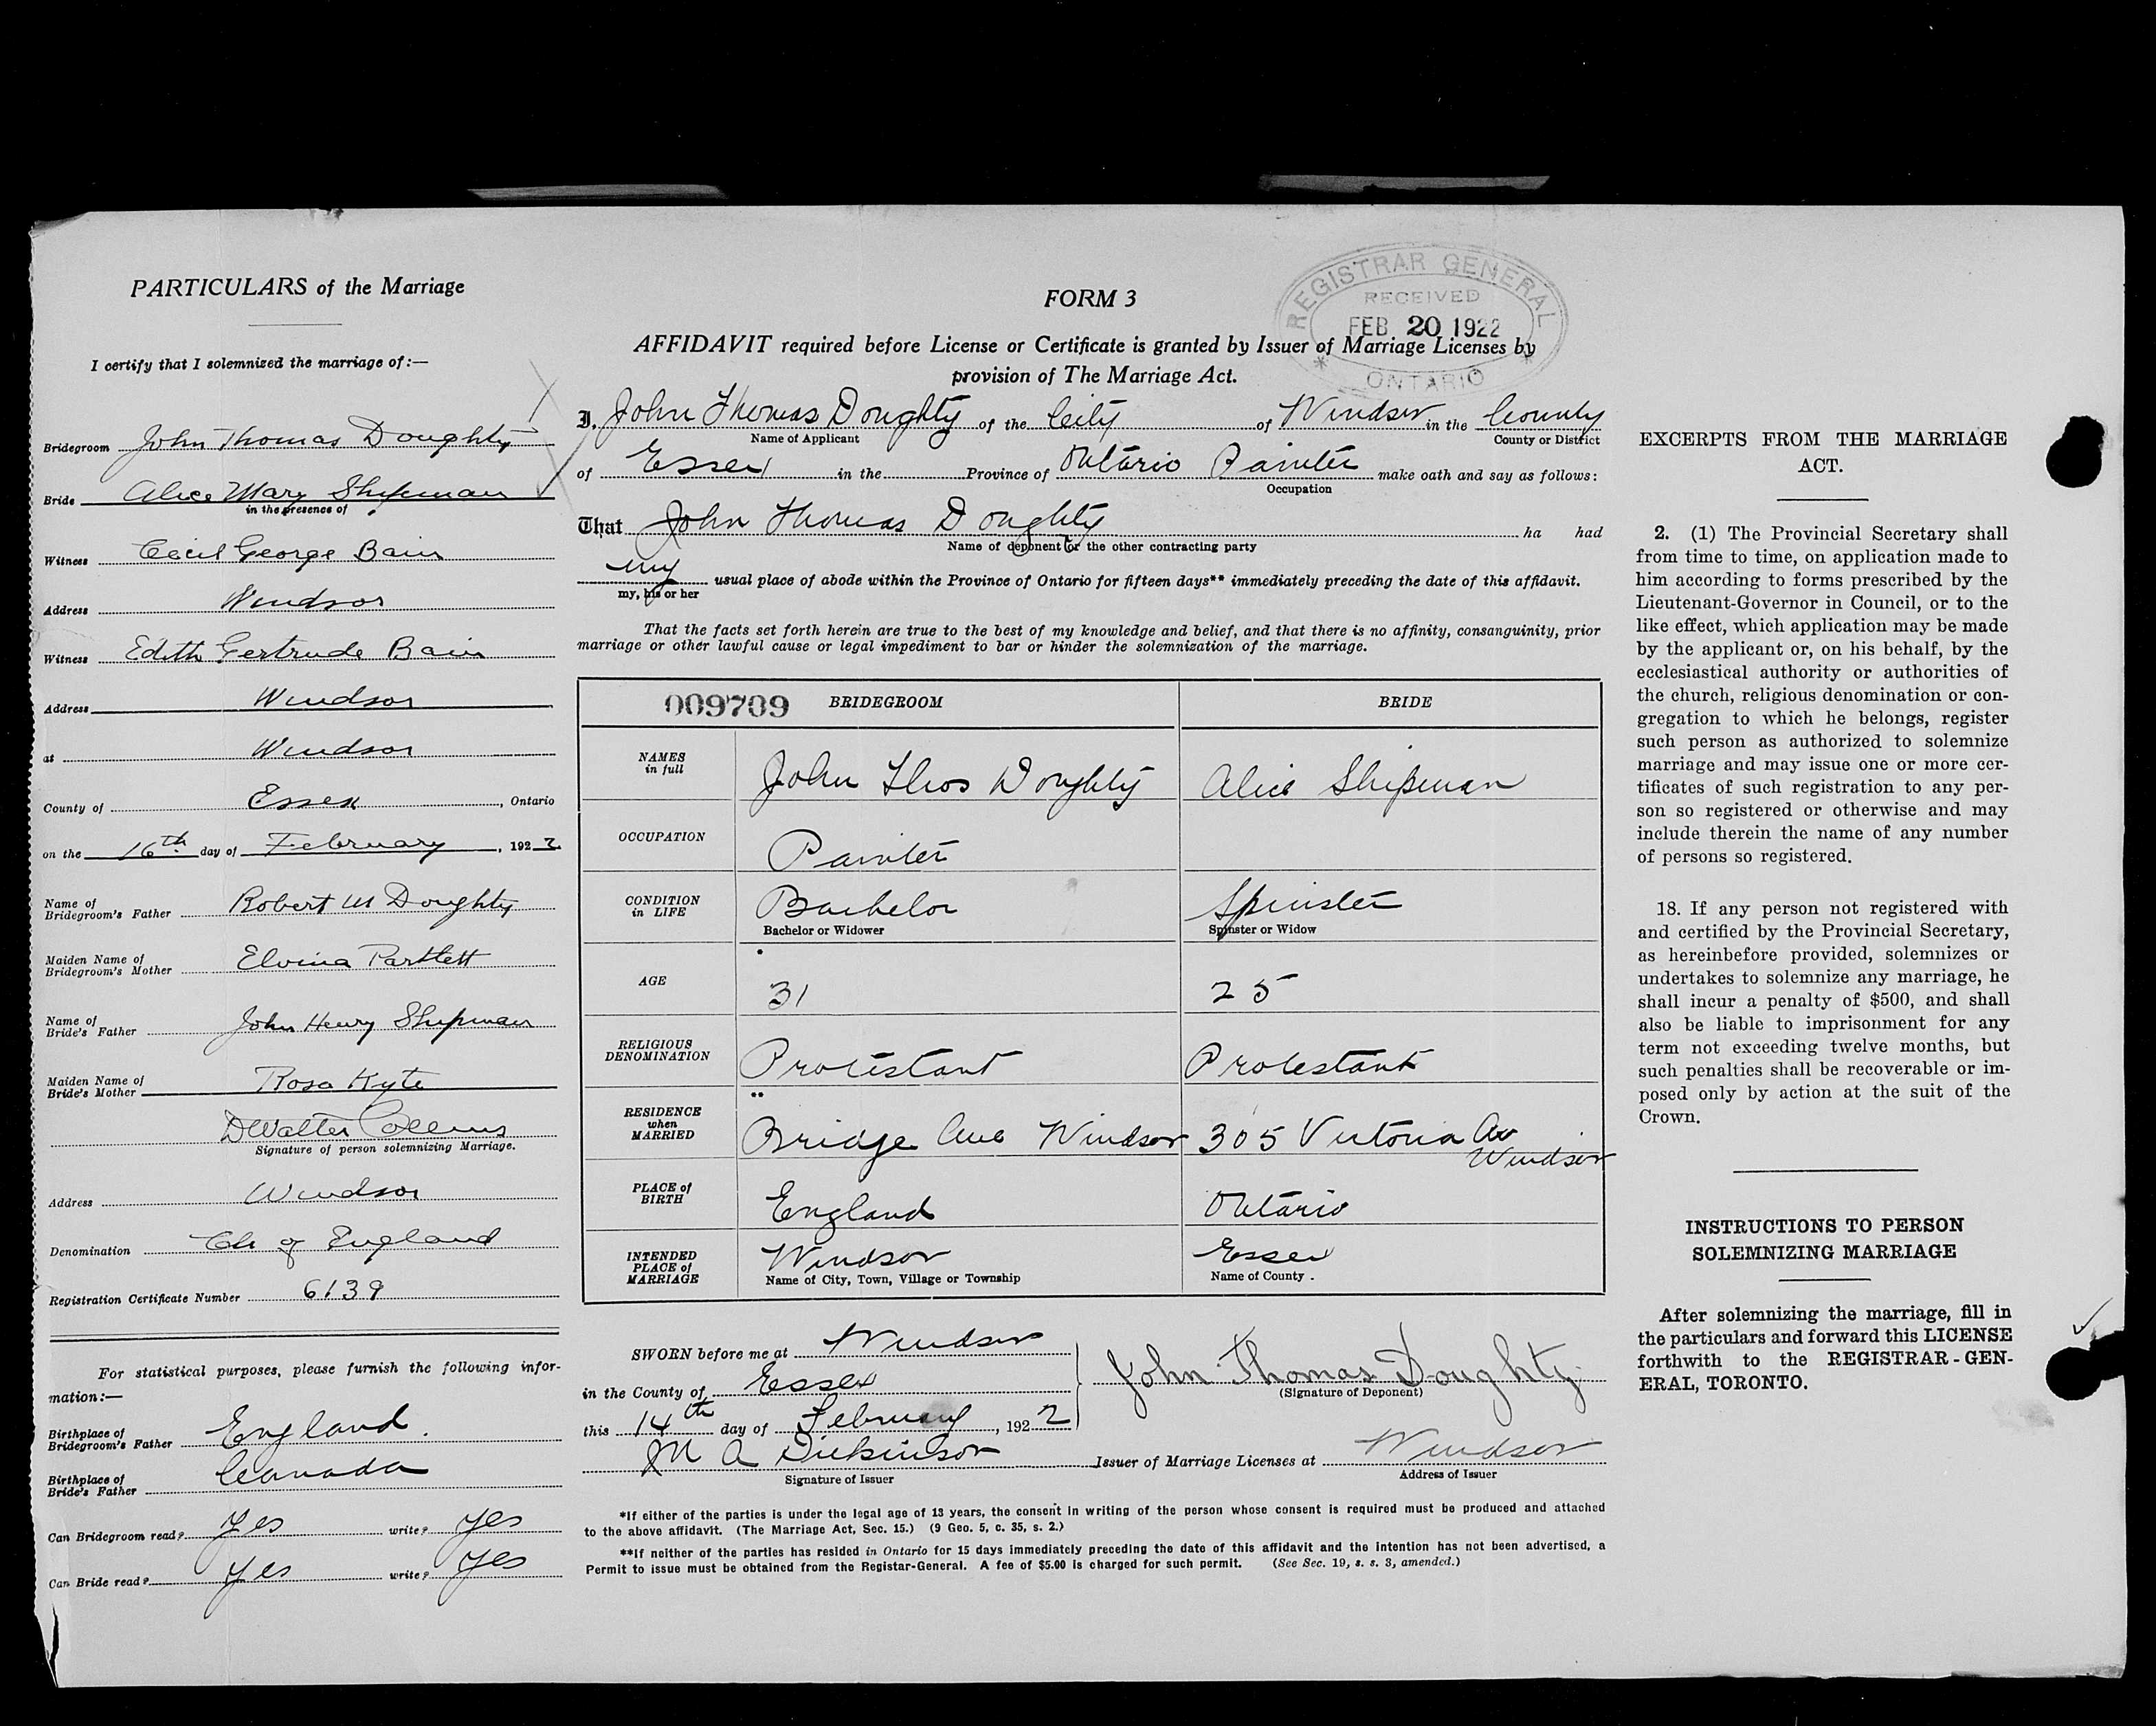 PARTICULARS of the Marriage
I certify that I solemnized the marriage of:—
Bridegroom John Thomas Doughty
Bride Alice Mary Shipman
in the presence of
Witness Cecil George Bain
Address Windsor
Witness Edith Gertrude Bain
Address Windsor
at Windsor
County of Essex, Ontario
on the 16th day of February, 1922
Name of Bridegroom's Father Robert M Doughty
Maiden Name of Bridegroom's Mother Elvina Partlett
Name of Bride's Father John Henry Shipman
Maiden Name of Bride's Mother Rosa Kyte
DWalter Collins
Signature of person solemnizing Marriage.
Address Windsor
Denomination Ch of England
Registration Certificate Number 6139
For statistical purposes, please furnish the following infor-
mation:—
Birthplace of Bridegroom's Father England.
Birthplace of Bride's Father Canada
Can Bridegroom read? Yes write? Yes
Can Bride read? Yes write? Yes
FORM 3
REGISTRAR GENERAL
RECEIVED
FEB 20 1922
ONTARIO
AFFIDAVIT required before License or Certificate is granted by Issuer of Marriage Licenses by
provision of The Marriage Act.
I, John Thomas Doughty of the City of Windsor in the County
Name of Applicant County or District
of Essex in the Province of Ontario Painter make oath and say as follows:
Occupation
That John Thomas Doughty ha had
Name of deponent or the other contracting party
my usual place of abode within the Province of Ontario for fifteen days** immediately preceding the date of this affidavit.
my, his or her
That the facts set forth herein are true to the best of my knowledge and belief, and that there is no affinity, consanguinity, prior
marriage or other lawful cause or legal impediment to bar or hinder the solemnization of the marriage.
009709 BRIDEGROOM BRIDE
NAMES in full John Thos Doughty Alice Shipman
OCCUPATION Painter
CONDITION in LIFE Bachelor Spinster
Bachelor or Widower Spinster or Widow
AGE 31 25
RELIGIOUS DENOMINATION Protestant Protestant
RESIDENCE when MARRIED Bridge Ave Windsor 305 Victoria Av
Windsor
PLACE of BIRTH England Ontario
INTENDED PLACE of MARRIAGE Windsor Essex
Name of City, Town, Village or Township Name of County.
SWORN before me at Windsor
in the County of Essex
this 14th day of February, 1922
John Thomas Doughty
(Signature of Deponent)
M A Dickinson Issuer of Marriage Licenses at Windsor
Signature of Issuer Address of Issuer
*If either of the parties is under the legal age of 18 years, the consent in writing of the person whose consent is required must be produced and attached
to the above affidavit. (The Marriage Act, Sec. 15.) (9 Geo. 5, c. 35, s. 2.)
**If neither of the parties has resided in Ontario for 15 days immediately preceding the date of this affidavit and the intention has not been advertised, a
Permit to issue must be obtained from the Registar-General. A fee of $5.00 is charged for such permit. (See Sec. 19, s. s. 3, amended.)
EXCERPTS FROM THE MARRIAGE
ACT.
2. (1) The Provincial Secretary shall
from time to time, on application made to
him according to forms prescribed by the
Lieutenant-Governor in Council, or to the
like effect, which application may be made
by the applicant or, on his behalf, by the
ecclesiastical authority or authorities of
the church, religious denomination or con-
gregation to which he belongs, register
such person as authorized to solemnize
marriage and may issue one or more cer-
tificates of such registration to any per-
son so registered or otherwise and may
include therein the name of any number
of persons so registered.
18. If any person not registered with
and certified by the Provincial Secretary,
as hereinbefore provided, solemnizes or
undertakes to solemnize any marriage, he
shall incur a penalty of $500, and shall
also be liable to imprisonment for any
term not exceeding twelve months, but
such penalties shall be recoverable or im-
posed only by action at the suit of the
Crown.
INSTRUCTIONS TO PERSON
SOLEMNIZING MARRIAGE
After solemnizing the marriage, fill in
the particulars and forward this LICENSE
forthwith to the REGISTRAR-GEN-
ERAL, TORONTO.